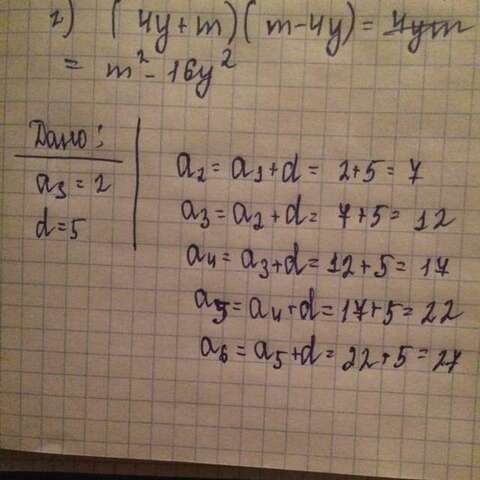 2) (4y+m)(m-4y)= 4ym
= m²-16y²
Дано:
a₁=2
d=5
a₂=a₁+d= 2+5=7
a₃=a₂+d= 7+5=12
a₄=a₃+d=12+5=17
a₅=a₄+d=17+5=22
a₆=a₅+d=22+5=27